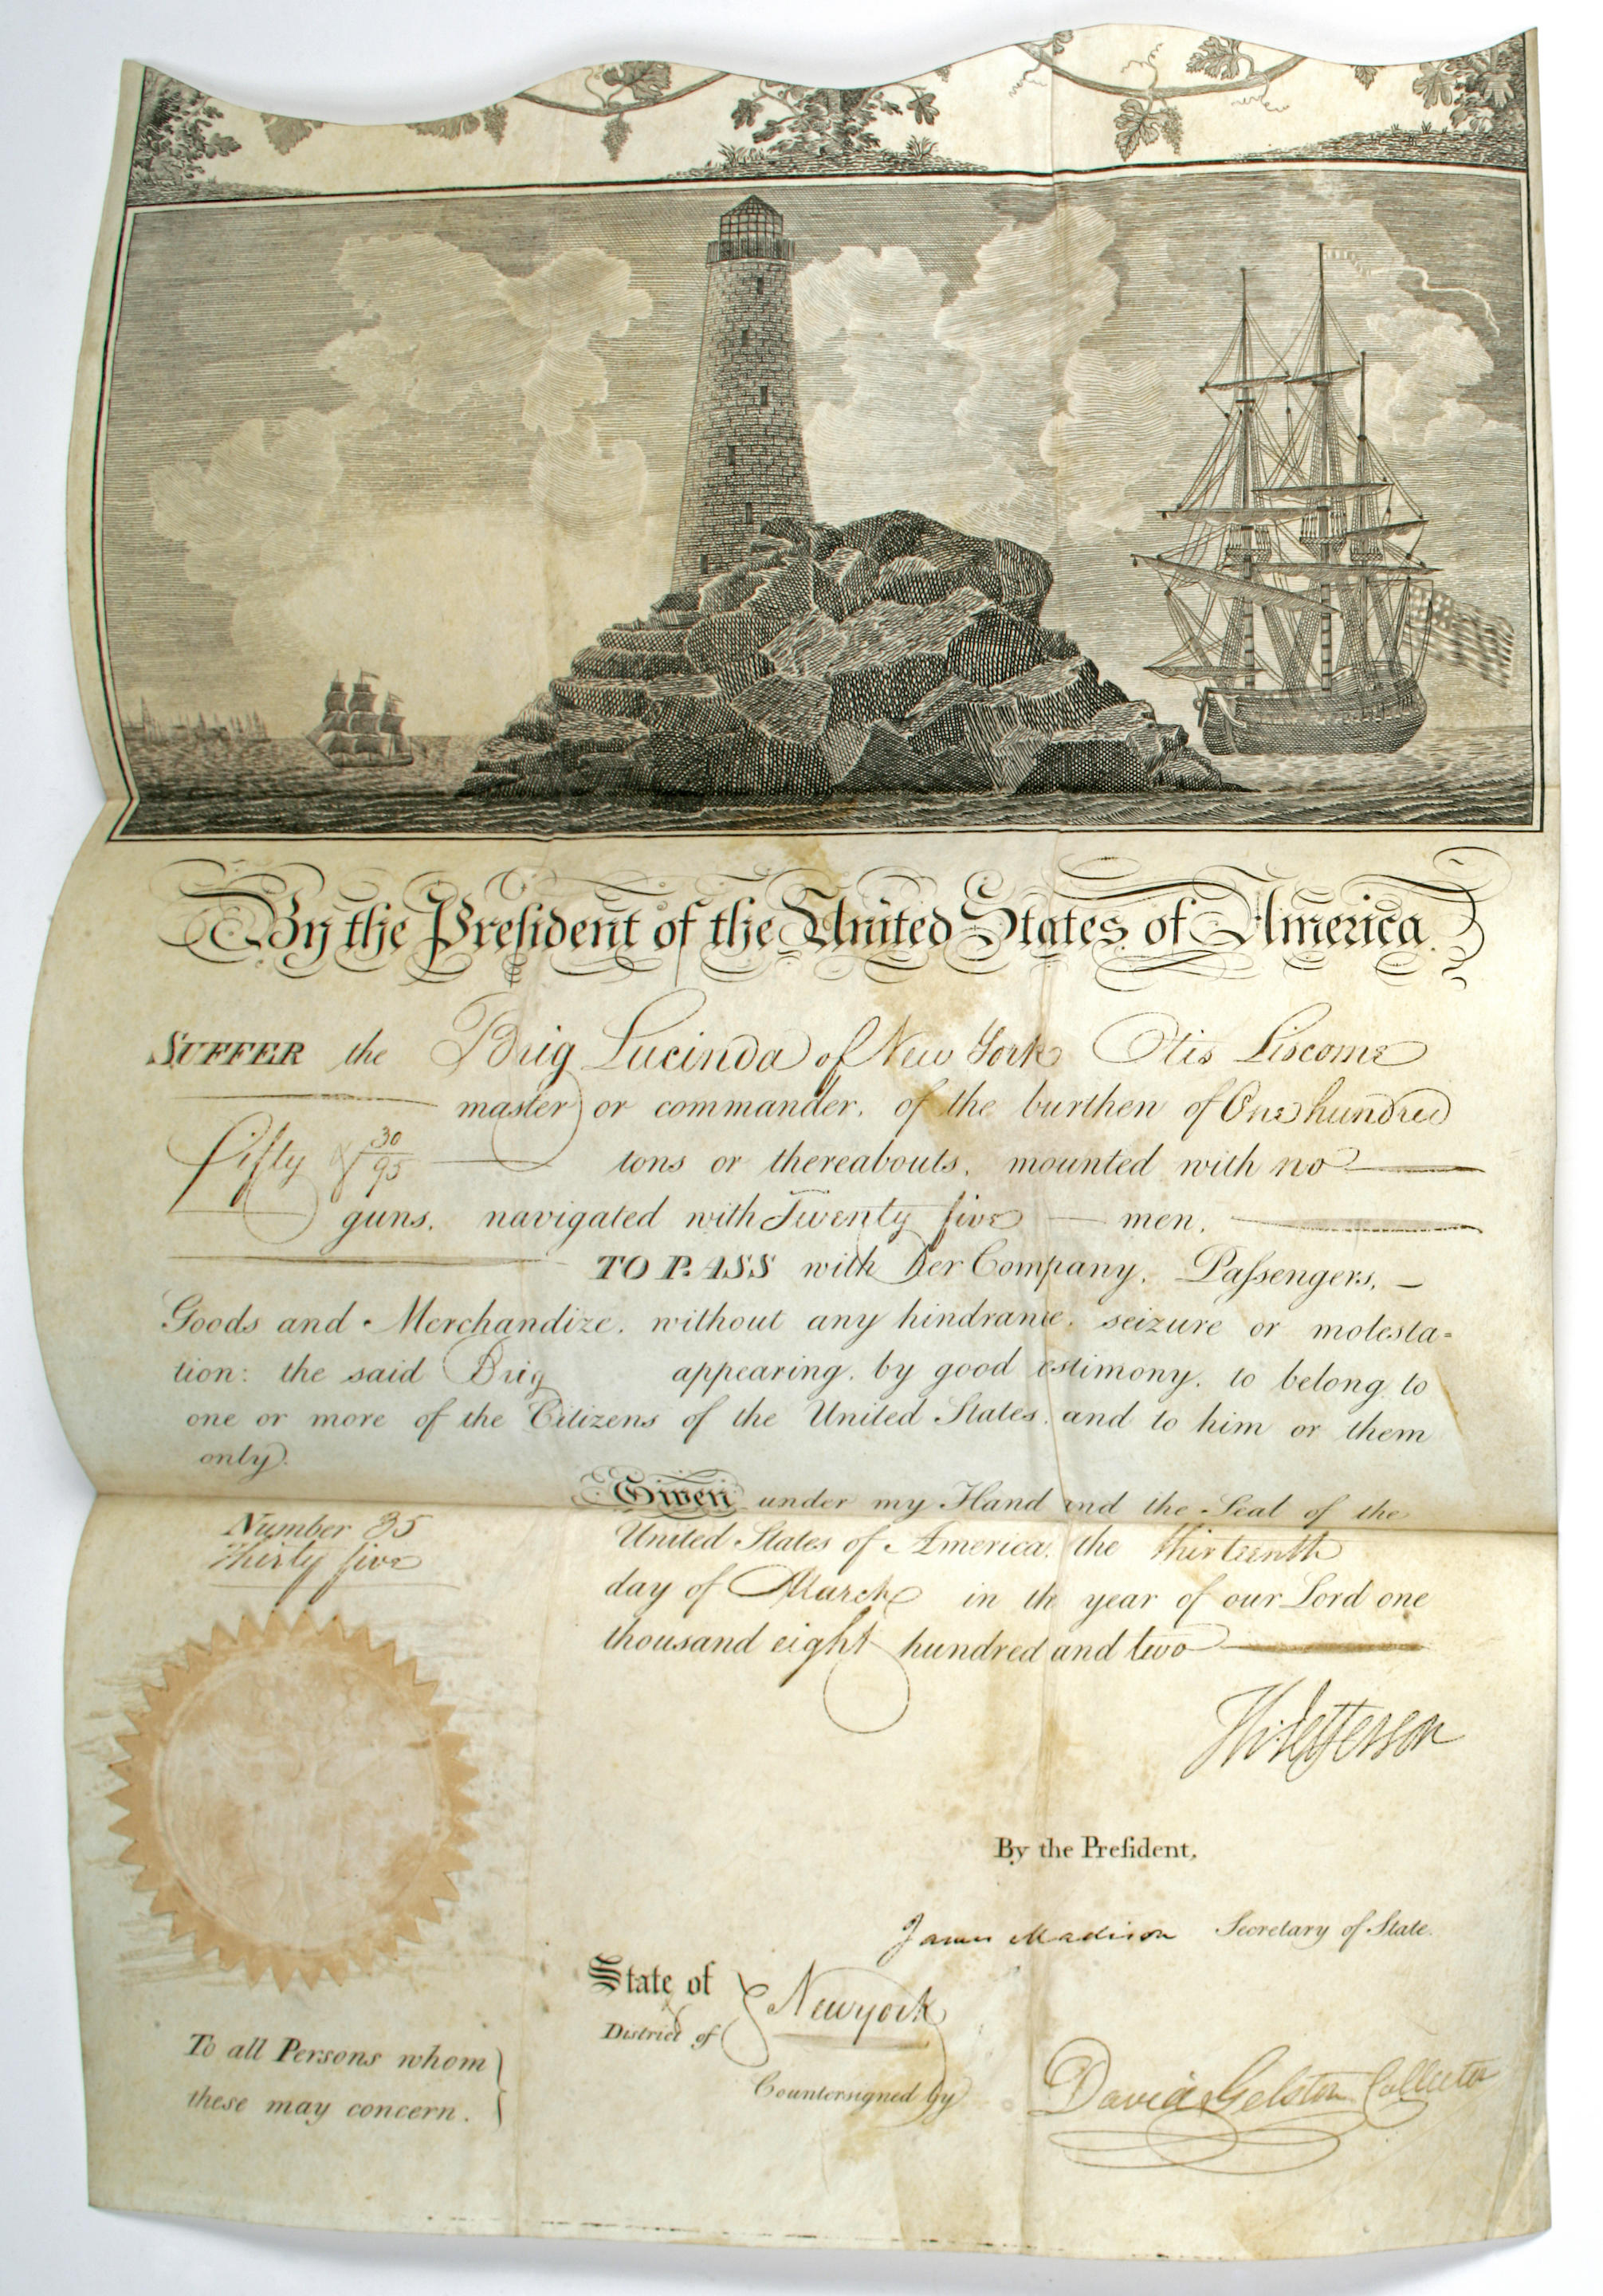 By the Preſident of the United States of America.
SUFFER the Brig Lucinda of New York Otis Liscome
master or commander, of the burthen of One hundred
fifty & 30/95 tons or thereabouts, mounted with no
guns, navigated with Twenty five men,
TO PASS with Her Company, Paſsengers,
Goods and Merchandize, without any hindrance, seizure or molesta=
tion: the said Brig appearing, by good testimony, to belong to
one or more of the Citizens of the United States, and to him or them
only.
Given under my Hand and the Seal of the
United States of America, the thirteenth
day of March in the year of our Lord one
thousand eight hundred and two
Number 35
Thirty five
Th: Jefferson
By the Preſident,
James Madison Secretary of State.
State of
District of Newyork
Countersigned by David Gelston Collector
To all Persons whom
these may concern.